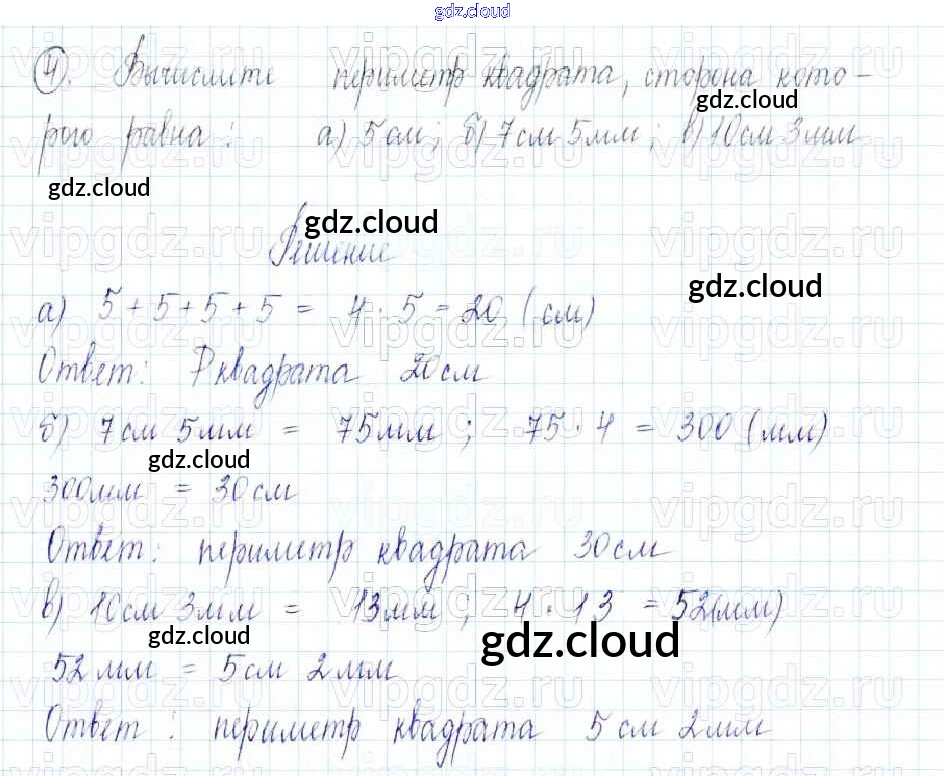 gdz.cloud
4). Вычислите периметр квадрата, сторона кото-
gdz.cloud
рого равна: а) 5 см; б) 7 см 5 мм; в) 10 см 3 мм
gdz.cloud
gdz.cloud
Решение
gdz.cloud
а) 5 + 5 + 5 + 5 = 4 · 5 = 20 (см)
Ответ: P квадрата 20 см
б) 7 см 5 мм = 75 мм; 75 · 4 = 300 (мм)
gdz.cloud
300 мм = 30 см
Ответ: периметр квадрата 30 см
в) 10 см 3 мм = 13 мм; 4 · 13 = 52 (мм)
gdz.cloud
gdz.cloud
52 мм = 5 см 2 мм
Ответ: периметр квадрата 5 см 2 мм
vipgdz.ru